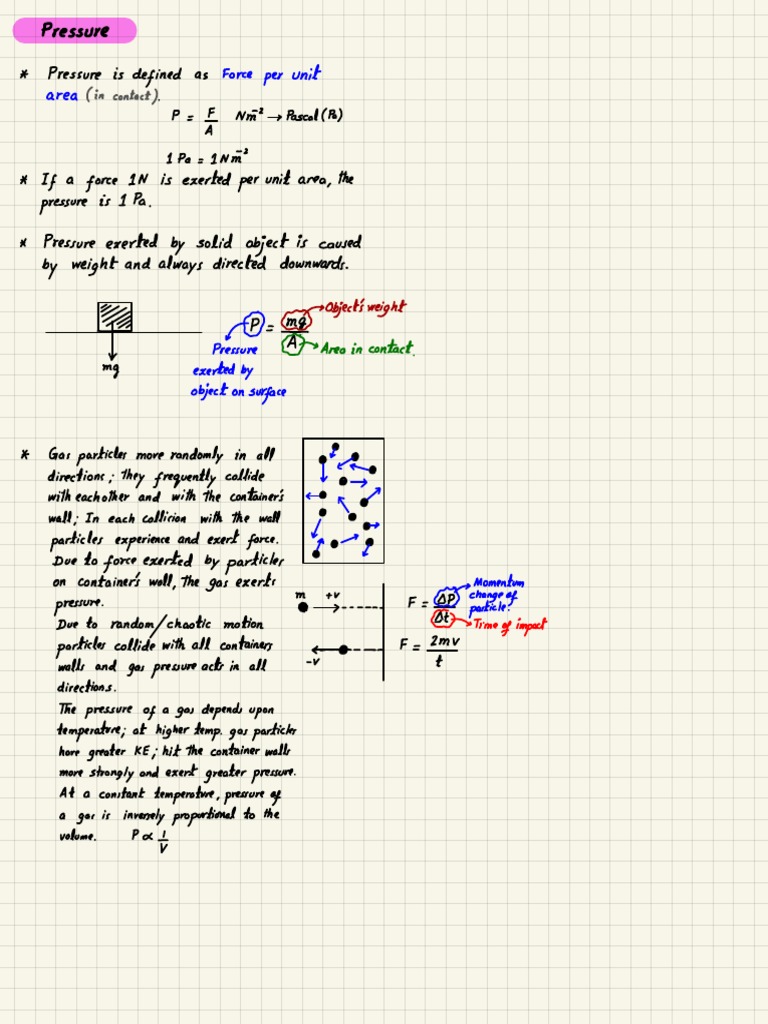 Pressure
* Pressure is defined as Force per unit
area (in contact).
P = F/A Nm⁻² → Pascal (Pa)
1 Pa = 1 Nm⁻²
* If a force 1N is exerted per unit area, the
pressure is 1 Pa.
* Pressure exerted by solid object is caused
by weight and always directed downwards.
mg
P = mg/A
Object's weight
Area in contact.
Pressure
exerted by
object on surface
* Gas particles move randomly in all
directions; They frequently collide
with eachother and with the container's
wall; In each collision with the wall
particles experience and exert force.
Due to force exerted by particles
on container's wall, The gas exerts
pressure.
Due to random/chaotic motion
particles collide with all containers
walls and gas pressure acts in all
directions.
The pressure of a gas depends upon
temperature; at higher temp. gas particles
have greater KE; hit the container walls
more strongly and exert greater pressure.
At a constant temperature, pressure of
a gas is inversely proportional to the
volume. P ∝ 1/V
m +v
-v
F = ΔP/Δt
Momentum
change of
particle.
Time of impact
F = 2mv/t